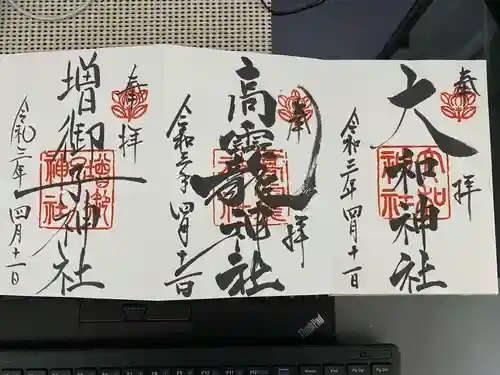 奉拝
大和神社
大和神社
令和三年四月十一日
奉拝
高龗神社
令和三年四月十一日
奉拝
増御子神社
増御子神社
令和三年四月十一日
ThinkPad